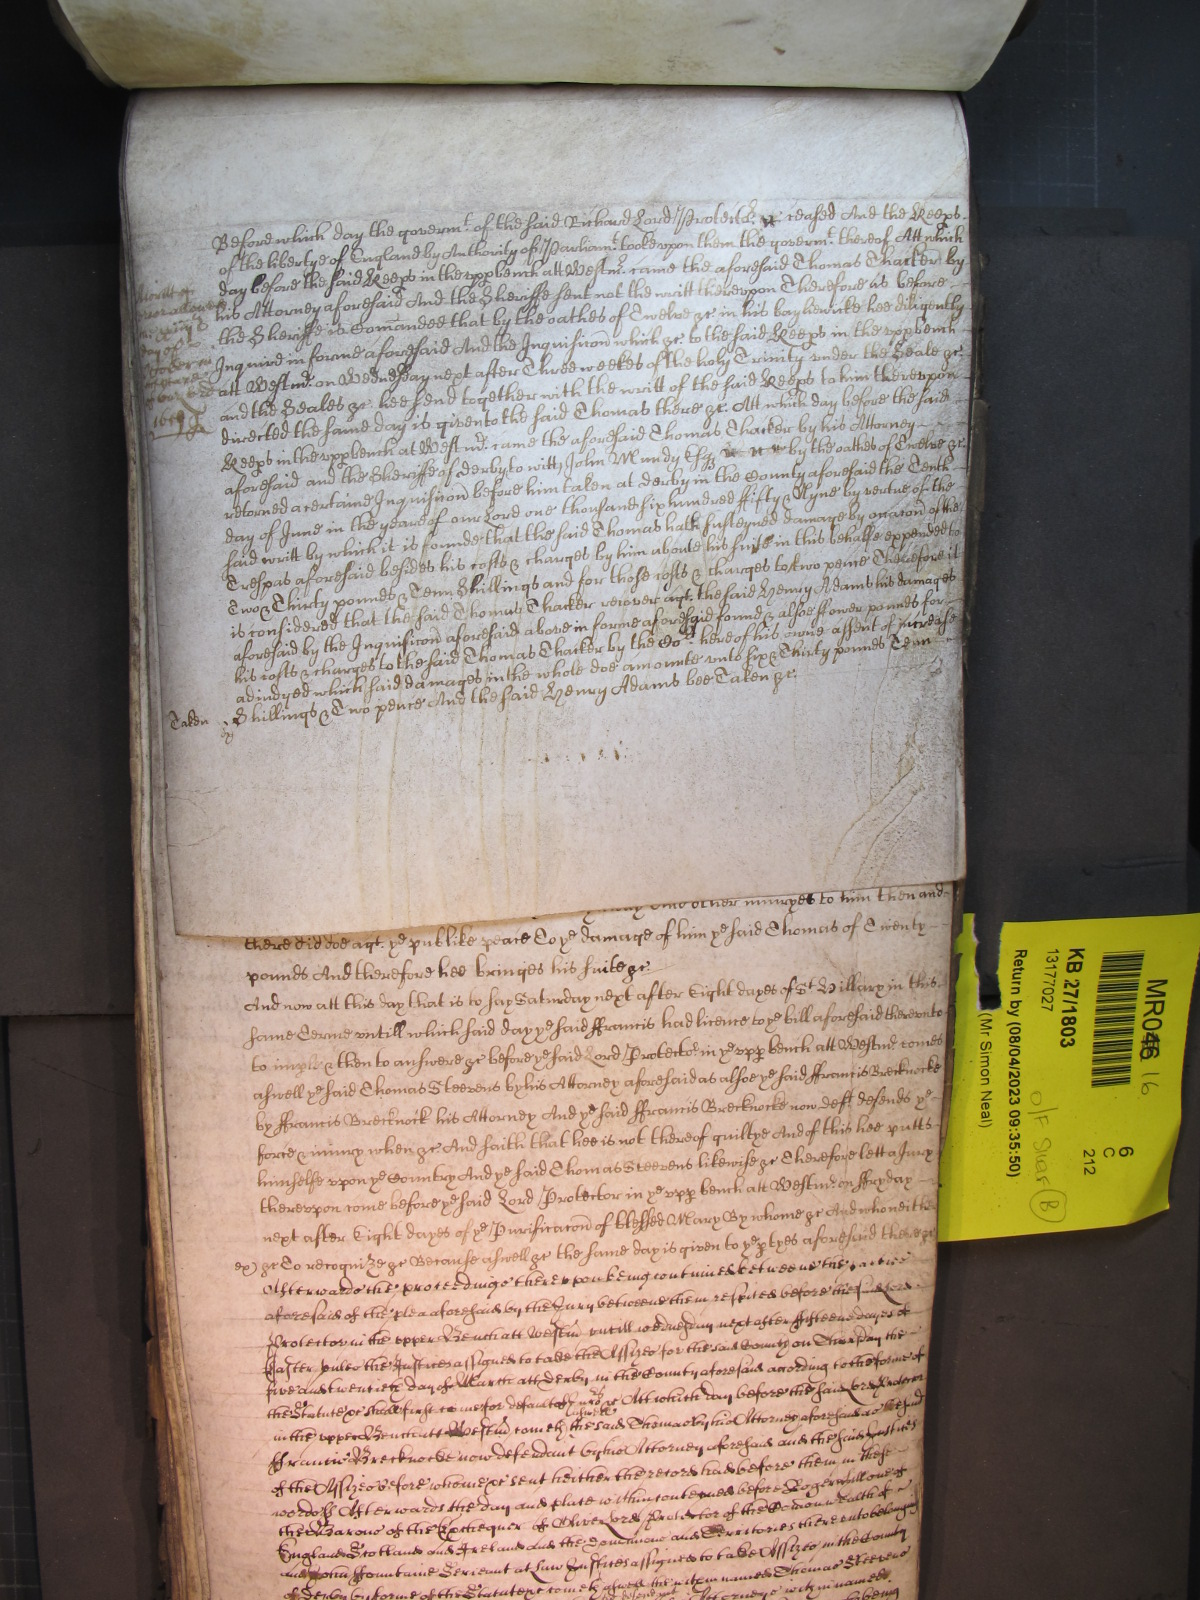 Before which day the governt. of the said Richard Lord Protector ceased And the Keeps
of the libertye of England by Authority of Parliamt. tooke upon them the govermt. thereof Att which
day before the said Keeps in the upp bench att Westmr. came the aforesaid Thomas Thacker by
his Attorney aforesaid And the Sheriffe sent not the writt thereupon Therefore as before
the Sheriffe is Comanded that by the oathes of Twelve &c in his baylewicke hee diligently
Inquire in forme aforesaid And the Inquisicon which &c. to the said Keeps in the upp bench
att Westmr. on Wednesday next after Three weekes of the holy Trinity under the Seale &c.
and the Seales &c. hee send together with the writt of the said Keeps to him thereupon
directed the same day is given to the said Thomas there &c. Att which day before the said
Keeps in the upp bench at Westmr. came the aforesaid Thomas Thacker by his Attorney
aforesaid and the Sheriffe of derby to witt John Mundy Esq by the oathes of Twelve &c.
retorned a certaine Inquisicon before him taken at derby in the County aforesaid the Tenth
day of June in the yeare of our Lord one thousand six hundred fifty & Nyne by vertue of the
said writt by which it is founde that the said Thomas hath susteyned damage by occacon of the
Trespas aforesaid besides his costs & charges by him about his suite in this behalfe expended to
Two & Thirty pounds & Tenn Shillings and for those costs & charges to two pence Therefore it
is considered that the said Thomas Thacker recover agt. the said Henry Adams his damages
aforesaid by the Inquisicon aforesaid above in forme aforesaid found & alsoe ffower pounds for
his costs & charges to the said Thomas Thacker by the Cort. here of his owne assent of increase
adiudged which said damages in the whole doe amounte unto six & Thirty pounds Tenn
Taken Shillings & Two pence And the said Henry Adams bee Taken &c.
1659
other iniuryes to him then and
there did doe agt. ye publike peace To ye damage of him ye said Thomas of Twenty
pounds And therefore hee bringes his suite &c
And now att this day that is to say Saturday next after Eight dayes of St Hillary in this
same Terme untill which said day ye said ffrancis had licence to ye bill aforesaid thereunto
to imple & then to answere &c before ye said Lord Protector in ye upp bench att Westmr comes
aswell ye said Thomas Steevens by his Attorney aforesaid as alsoe ye said ffrancis Brecknocke
by ffrancis Brecknock his Attorney And ye said ffrancis Brecknocke now deft. defends ye
force & iniury when &c And saith that hee is not thereof guiltye And of this hee putts
himselfe upon ye Country And ye said Thomas Steevens likewise &c Therefore lett a Jury
thereupon come before ye said Lord Protector in ye upp bench att Westmr. on ffryday
next after Eight dayes of ye Purificacon of blessed Mary By whome &c And who neither
&c To recognize &c Because aswell &c the same day is given to ye ptyes aforesaid there &c
Afterwards the proceedings thereupon being continued betweene the parties
aforesaid of the plea aforesaid by the Jury betweene them respited before the said Lord
Protector in the upper Bench att Westmr untill wednesday next after fifteene dayes of
Easter unles the Justices assigned to take the Assizes for the said County on Thursday the
five and twentieth day of March att Derby in the County aforesaid according to the forme of
the Statute &c shall first come for default of Jurors &c Att which day before the said Lord Protector
in the upper Bench att Westmr cometh aswell the said Thomas by his Attorney aforesaid as the said
ffrancis Brecknocke now defendant by his Attorney aforesaid and the said Justices
of the Assizes before whome &c sent hither the record had before them in these
words Afterwards the day and place within conteyned before Roger Hill one of
the Barons of the Exchequer of Oliver Lord Protector of the Comonwealth of
England Scotland and Ireland and the Dominions and Territories thereunto belonging
and John Fountaine Serieant at Law Justices assigned to take Assizes in the County
of Derby by forme of the Statute &c cometh aswell the within named Thomas Steevens
MR046
16
KB 27/1803
13177027
Return by (08/04/2023 09:35:50)
(Mr Simon Neal)
6
C
212
O/F
B